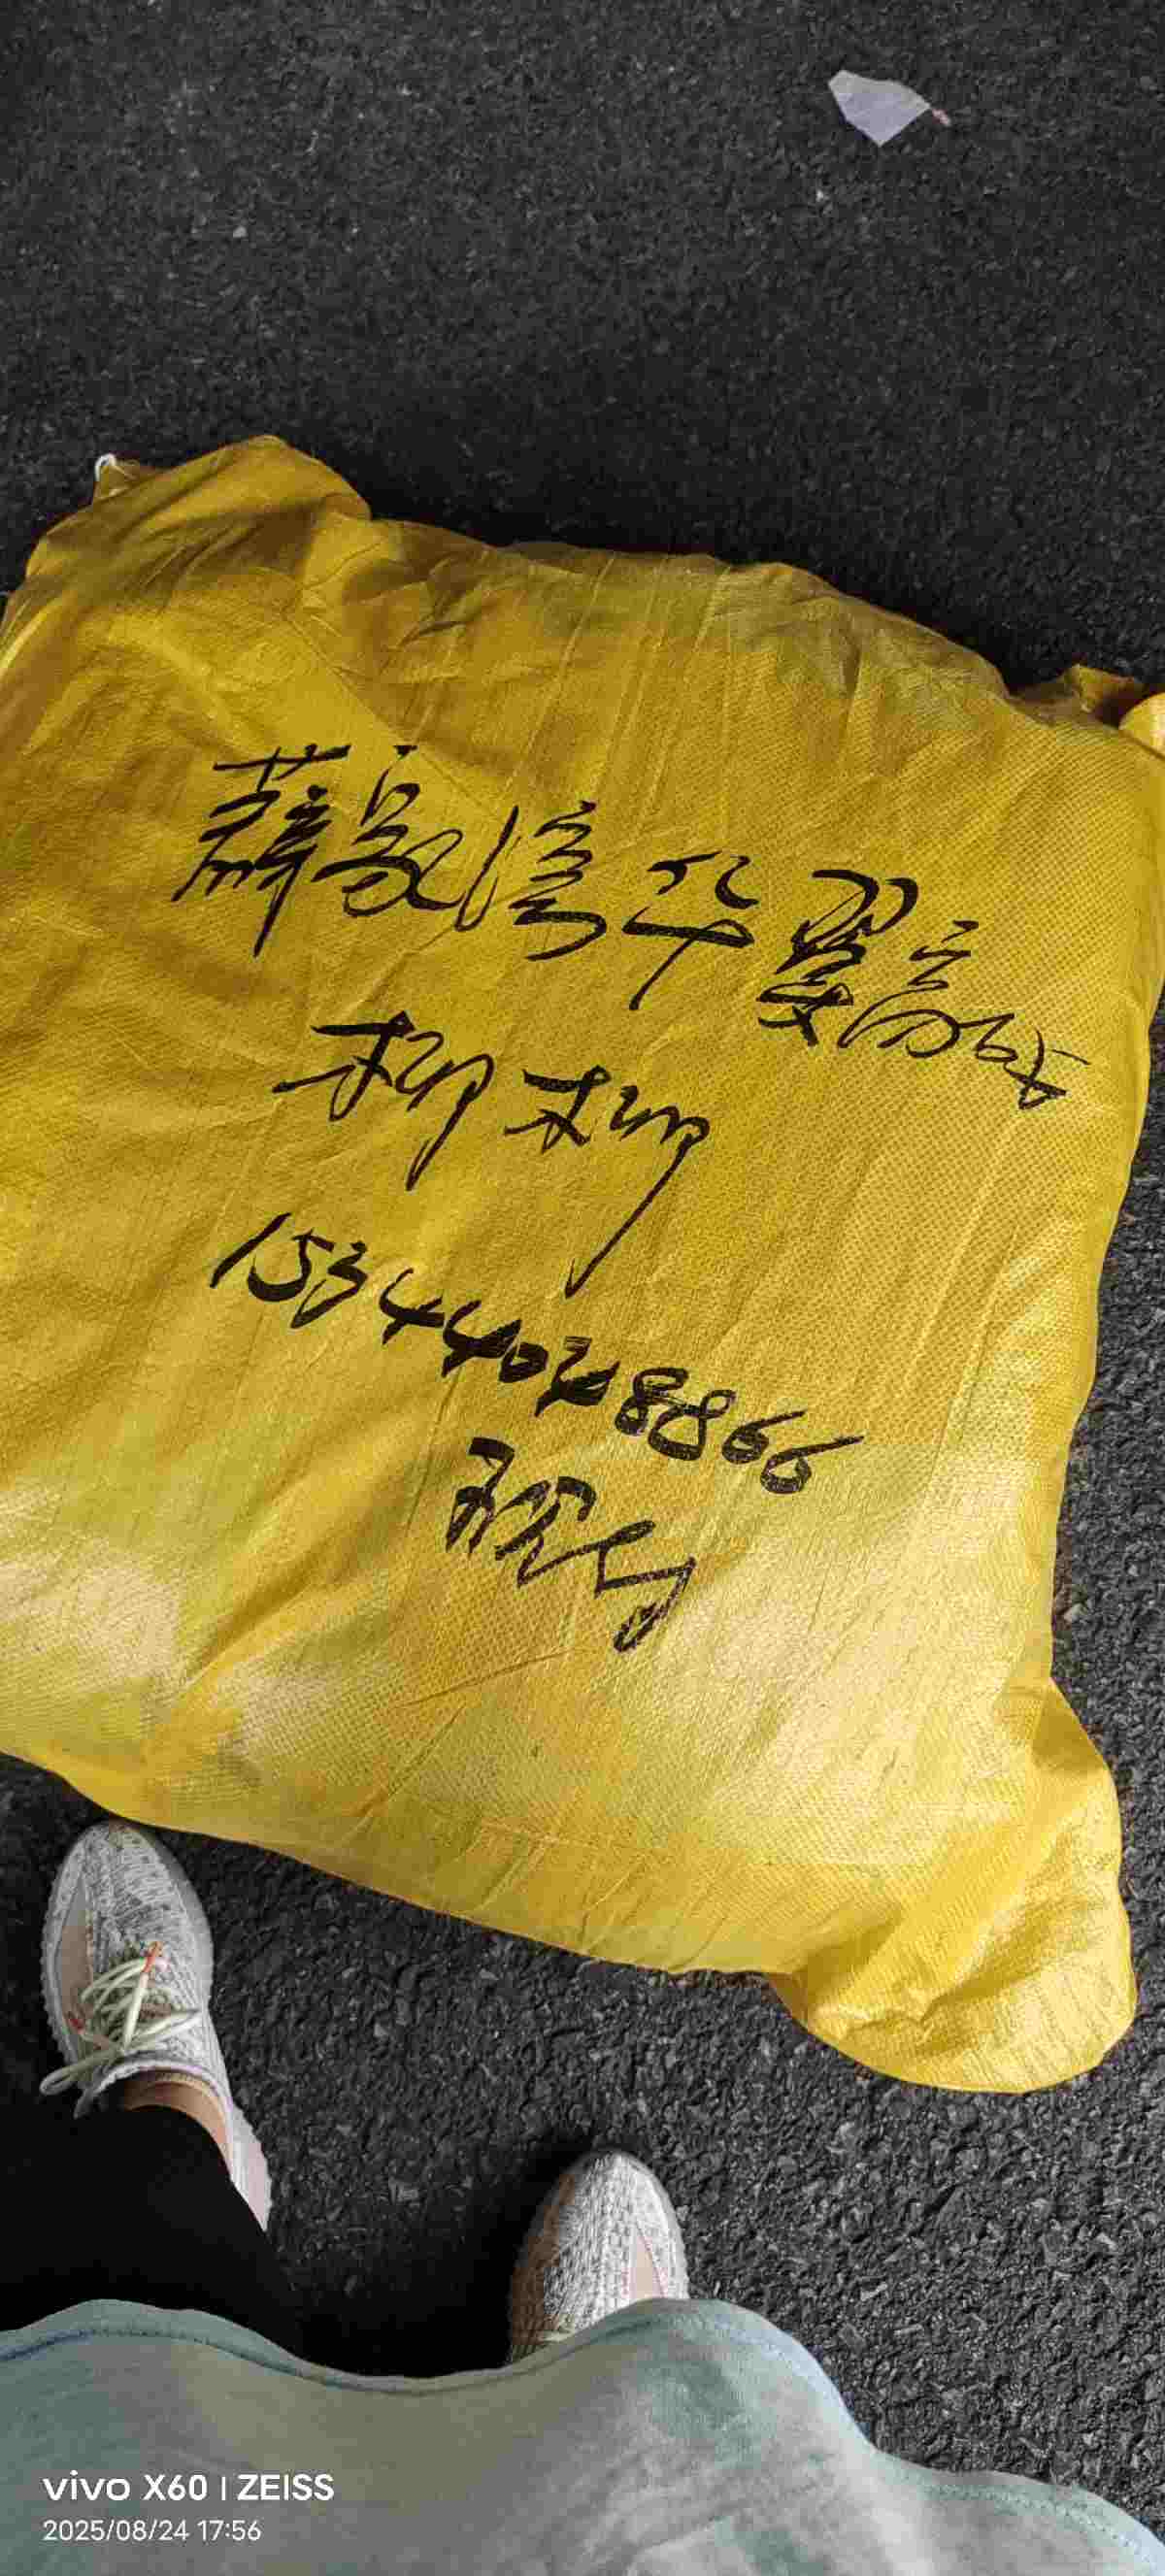 薛家湾华翼商城
柳柳
15344028866
预付
vivo X60 | ZEISS
2025/08/24 17:56